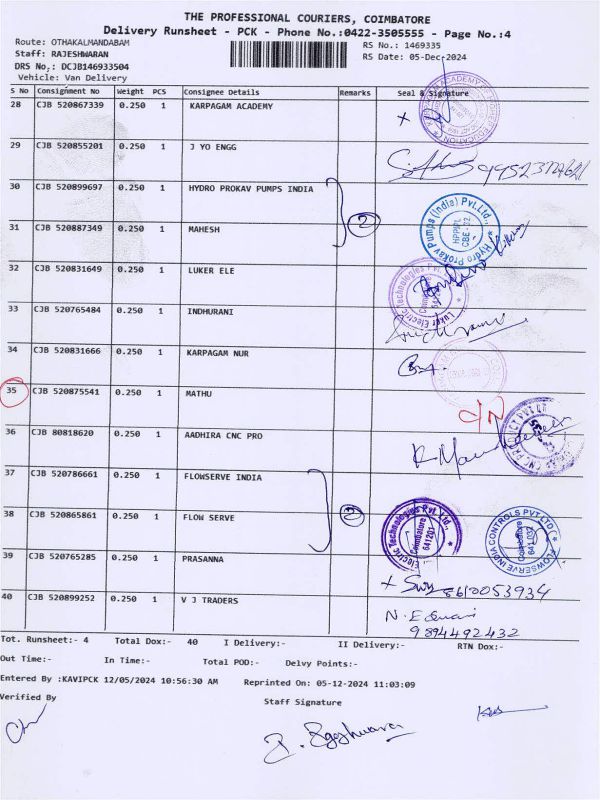 THE PROFESSIONAL COURIERS, COIMBATORE
Delivery Runsheet - PCK - Phone No.:0422-3505555 - Page No.:4
Route: OTHAKALMANDABAM RS No.: 1469335
Staff: RAJESHWARAN RS Date: 05-Dec-2024
DRS No.: DCJB146933504
Vehicle: Van Delivery
S No Consignment No Weight PCS Consignee Details Remarks Seal & Signature
28 CJB 520867339 0.250 1 KARPAGAM ACADEMY
29 CJB 520855201 0.250 1 J YO ENGG
30 CJB 520899697 0.250 1 HYDRO PROKAV PUMPS INDIA
2
Hydro Prokav Pumps (India) Pvt.Ltd.,
HPPIPL
CBE-32
31 CJB 520887349 0.250 1 MAHESH
32 CJB 520831649 0.250 1 LUKER ELE
Luker Electric Technologies Pvt. Ltd.
33 CJB 520765484 0.250 1 INDHURANI
34 CJB 520831666 0.250 1 KARPAGAM NUR
35 CJB 520875541 0.250 1 MATHU
36 CJB 80818620 0.250 1 AADHIRA CNC PRO
37 CJB 520786661 0.250 1 FLOWSERVE INDIA
38 CJB 520865861 0.250 1 FLOW SERVE
Electric Technologies Pvt. Ltd.,
Coimbatore
641201
FLOWSERVE INDIA CONTROLS PVT.LTD.
Coimbatore
641 032
39 CJB 520765285 0.250 1 PRASANNA
8610053934
40 CJB 520899252 0.250 1 V J TRADERS
9894492432
Tot. Runsheet:- 4 Total Dox:- 40 I Delivery:- II Delivery:- RTN Dox:-
Out Time:- In Time:- Total POD:- Delvy Points:-
Entered By :KAVIPCK 12/05/2024 10:56:30 AM Reprinted On: 05-12-2024 11:03:09
Verified By Staff Signature